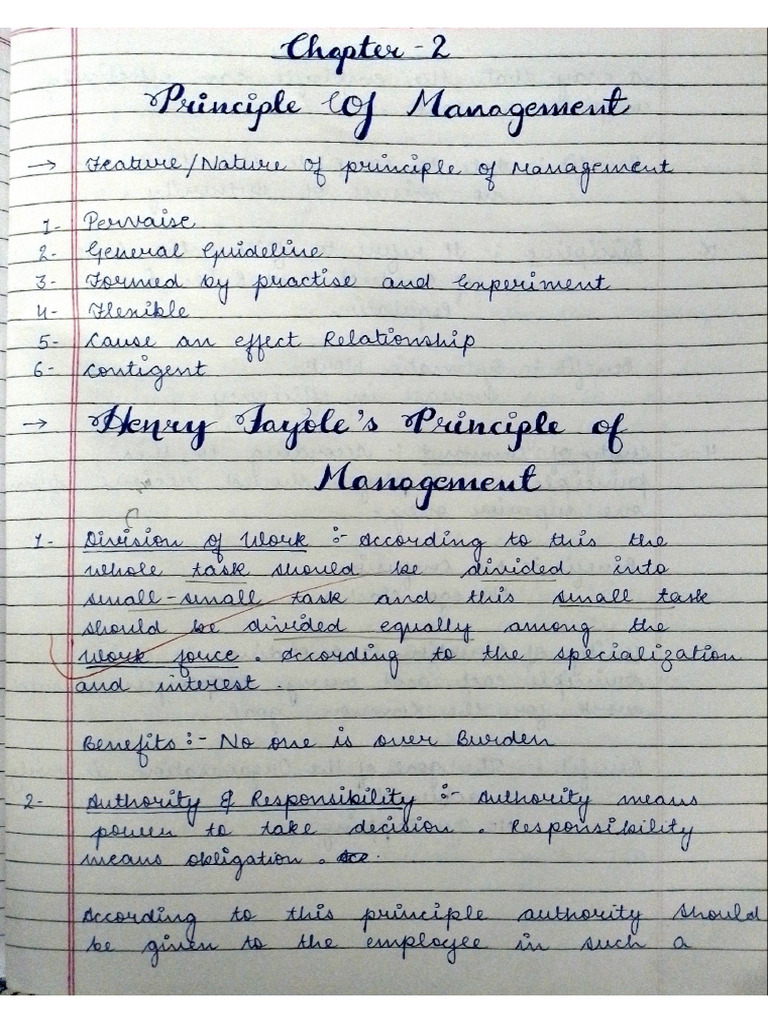 Chapter - 2
Principle Of Management
→ Feature/Nature of principle of Management
1- Pervaise
2- General Guideline
3- Formed by practise and Experiment
4- Flexible
5- Cause an effect Relationship
6- Contigent
→ Henry Fayole's Principle of
Management
1- Division of Work :- According to this the
whole task should be divided into
small-small task and this small task
should be divided equally among the
work force. According to the specialization
and interest.
Benefits :- No one is over Burden
2- Authority & Responsibility :- Authority means
power to take decision. Responsibility
means obligation.
According to this principle authority should
be given to the employee in such a